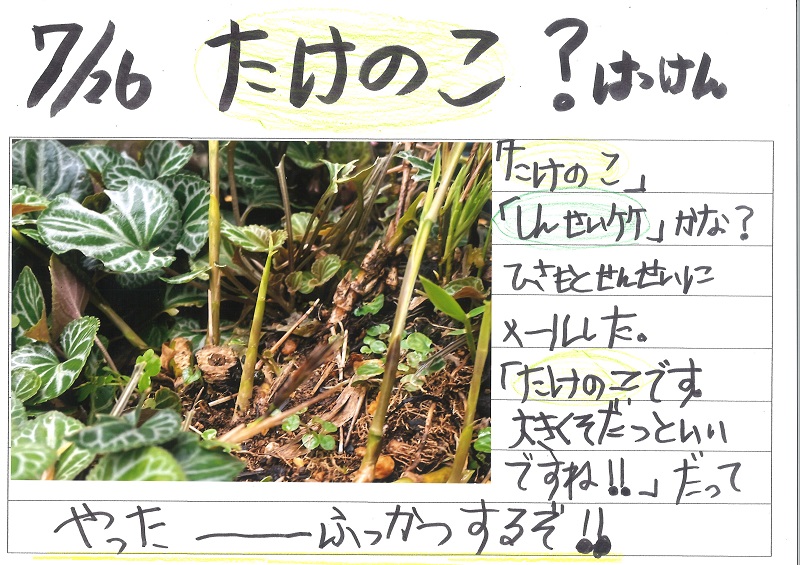 7/26 たけのこ？はっけん
「たけのこ」
「しんせいケケ」かな？
ひさもとせんせいに
メールした。
「たけのこです。
大きくそだつといい
ですね!!」だって
やった ーふっかつするぞ!!